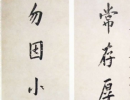 常存厚
勿因小